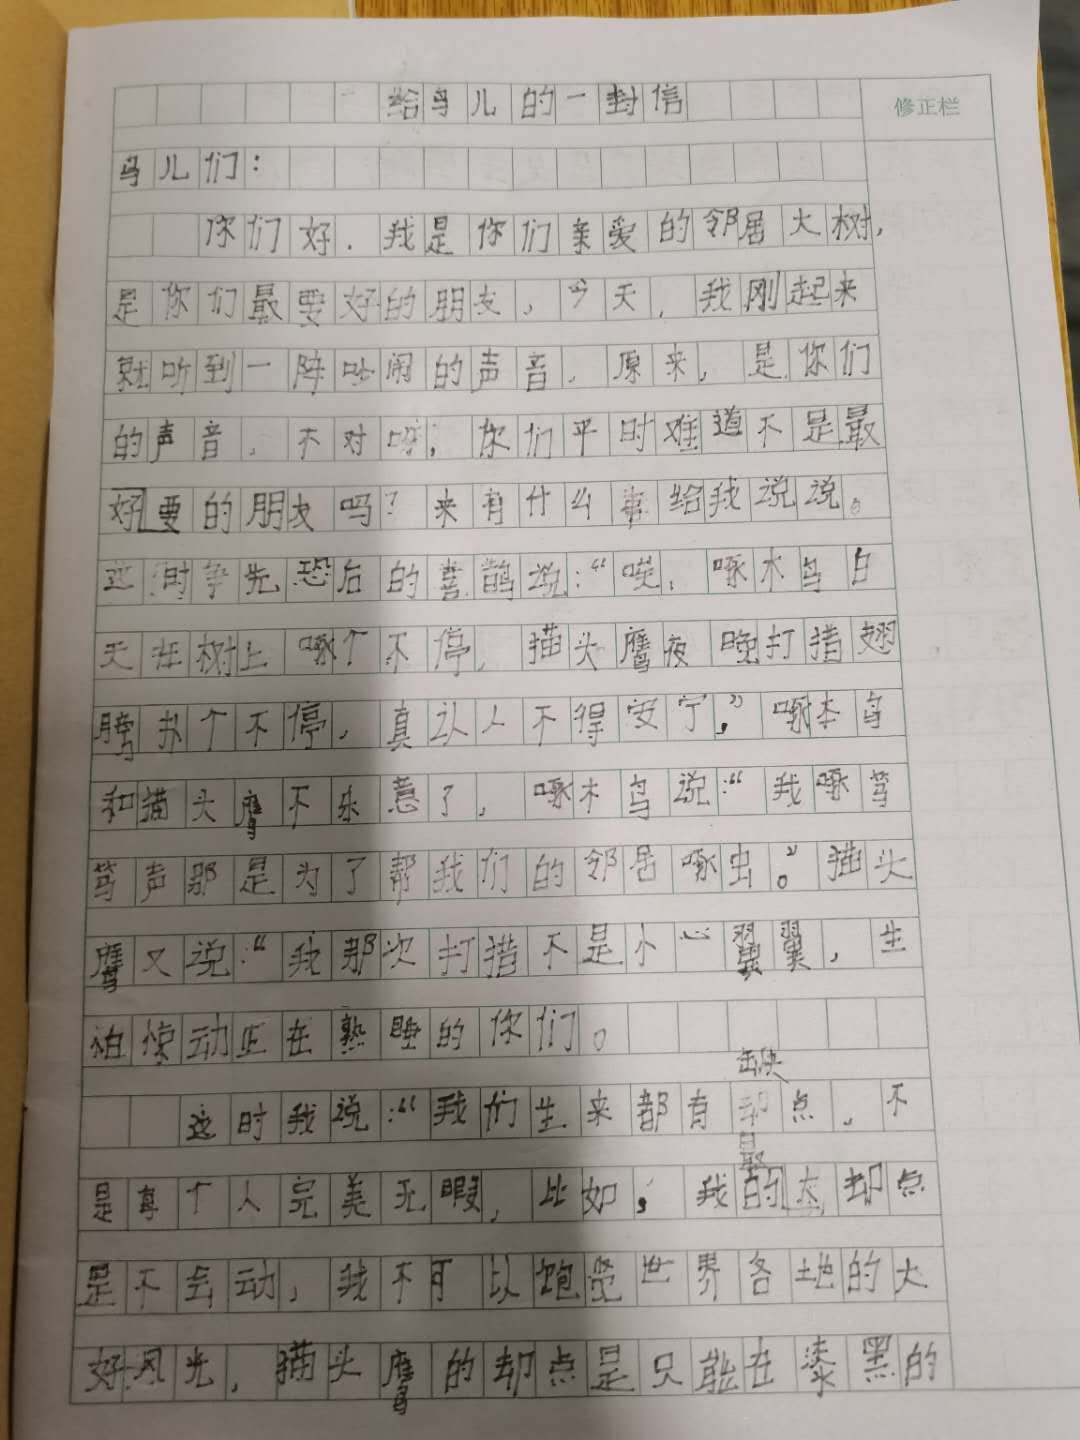 给鸟儿的一封信
修正栏
鸟儿们：
你们好．我是你们亲爱的邻居大树，
是你们最要好的朋友，今天，我刚起来
就听到一阵吵闹的声音．原来，是你们
的声音．不对呀，你们平时难道不是最
好要的朋友吗？来有什么事给我说说。
这时争先恐后的喜鹊说：“唉，啄木鸟白
天在树上啄个不停，猫头鹰夜晚打措翅
膀扑个不停，真认人不得安宁，”啄木鸟
和猫头鹰不乐意了，啄木鸟说：“我啄笃
笃声那是为了帮我们的邻居啄虫。”猫头
鹰又说：“我那次打措不是小心翼翼，生
怕惊动正在熟睡的你们。
缺
这时我说：“我们生来都有却点，不
最
是每个人完美无暇，比如，我的大却点
是不会动，我不可以饱览世界各地的大
好风光，猫头鹰的却点是只能在漆黑的